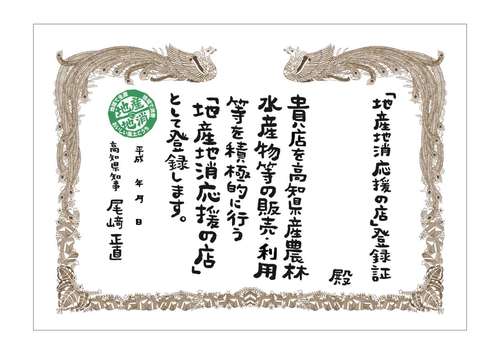 「地産地消応援の店」登録証
殿
貴店を高知県産農林
水産物等の販売・利用
等を積極的に行う
「地産地消応援の店」
として登録します。
平成 年 月 日
高知県知事 尾﨑正直
地産
地消